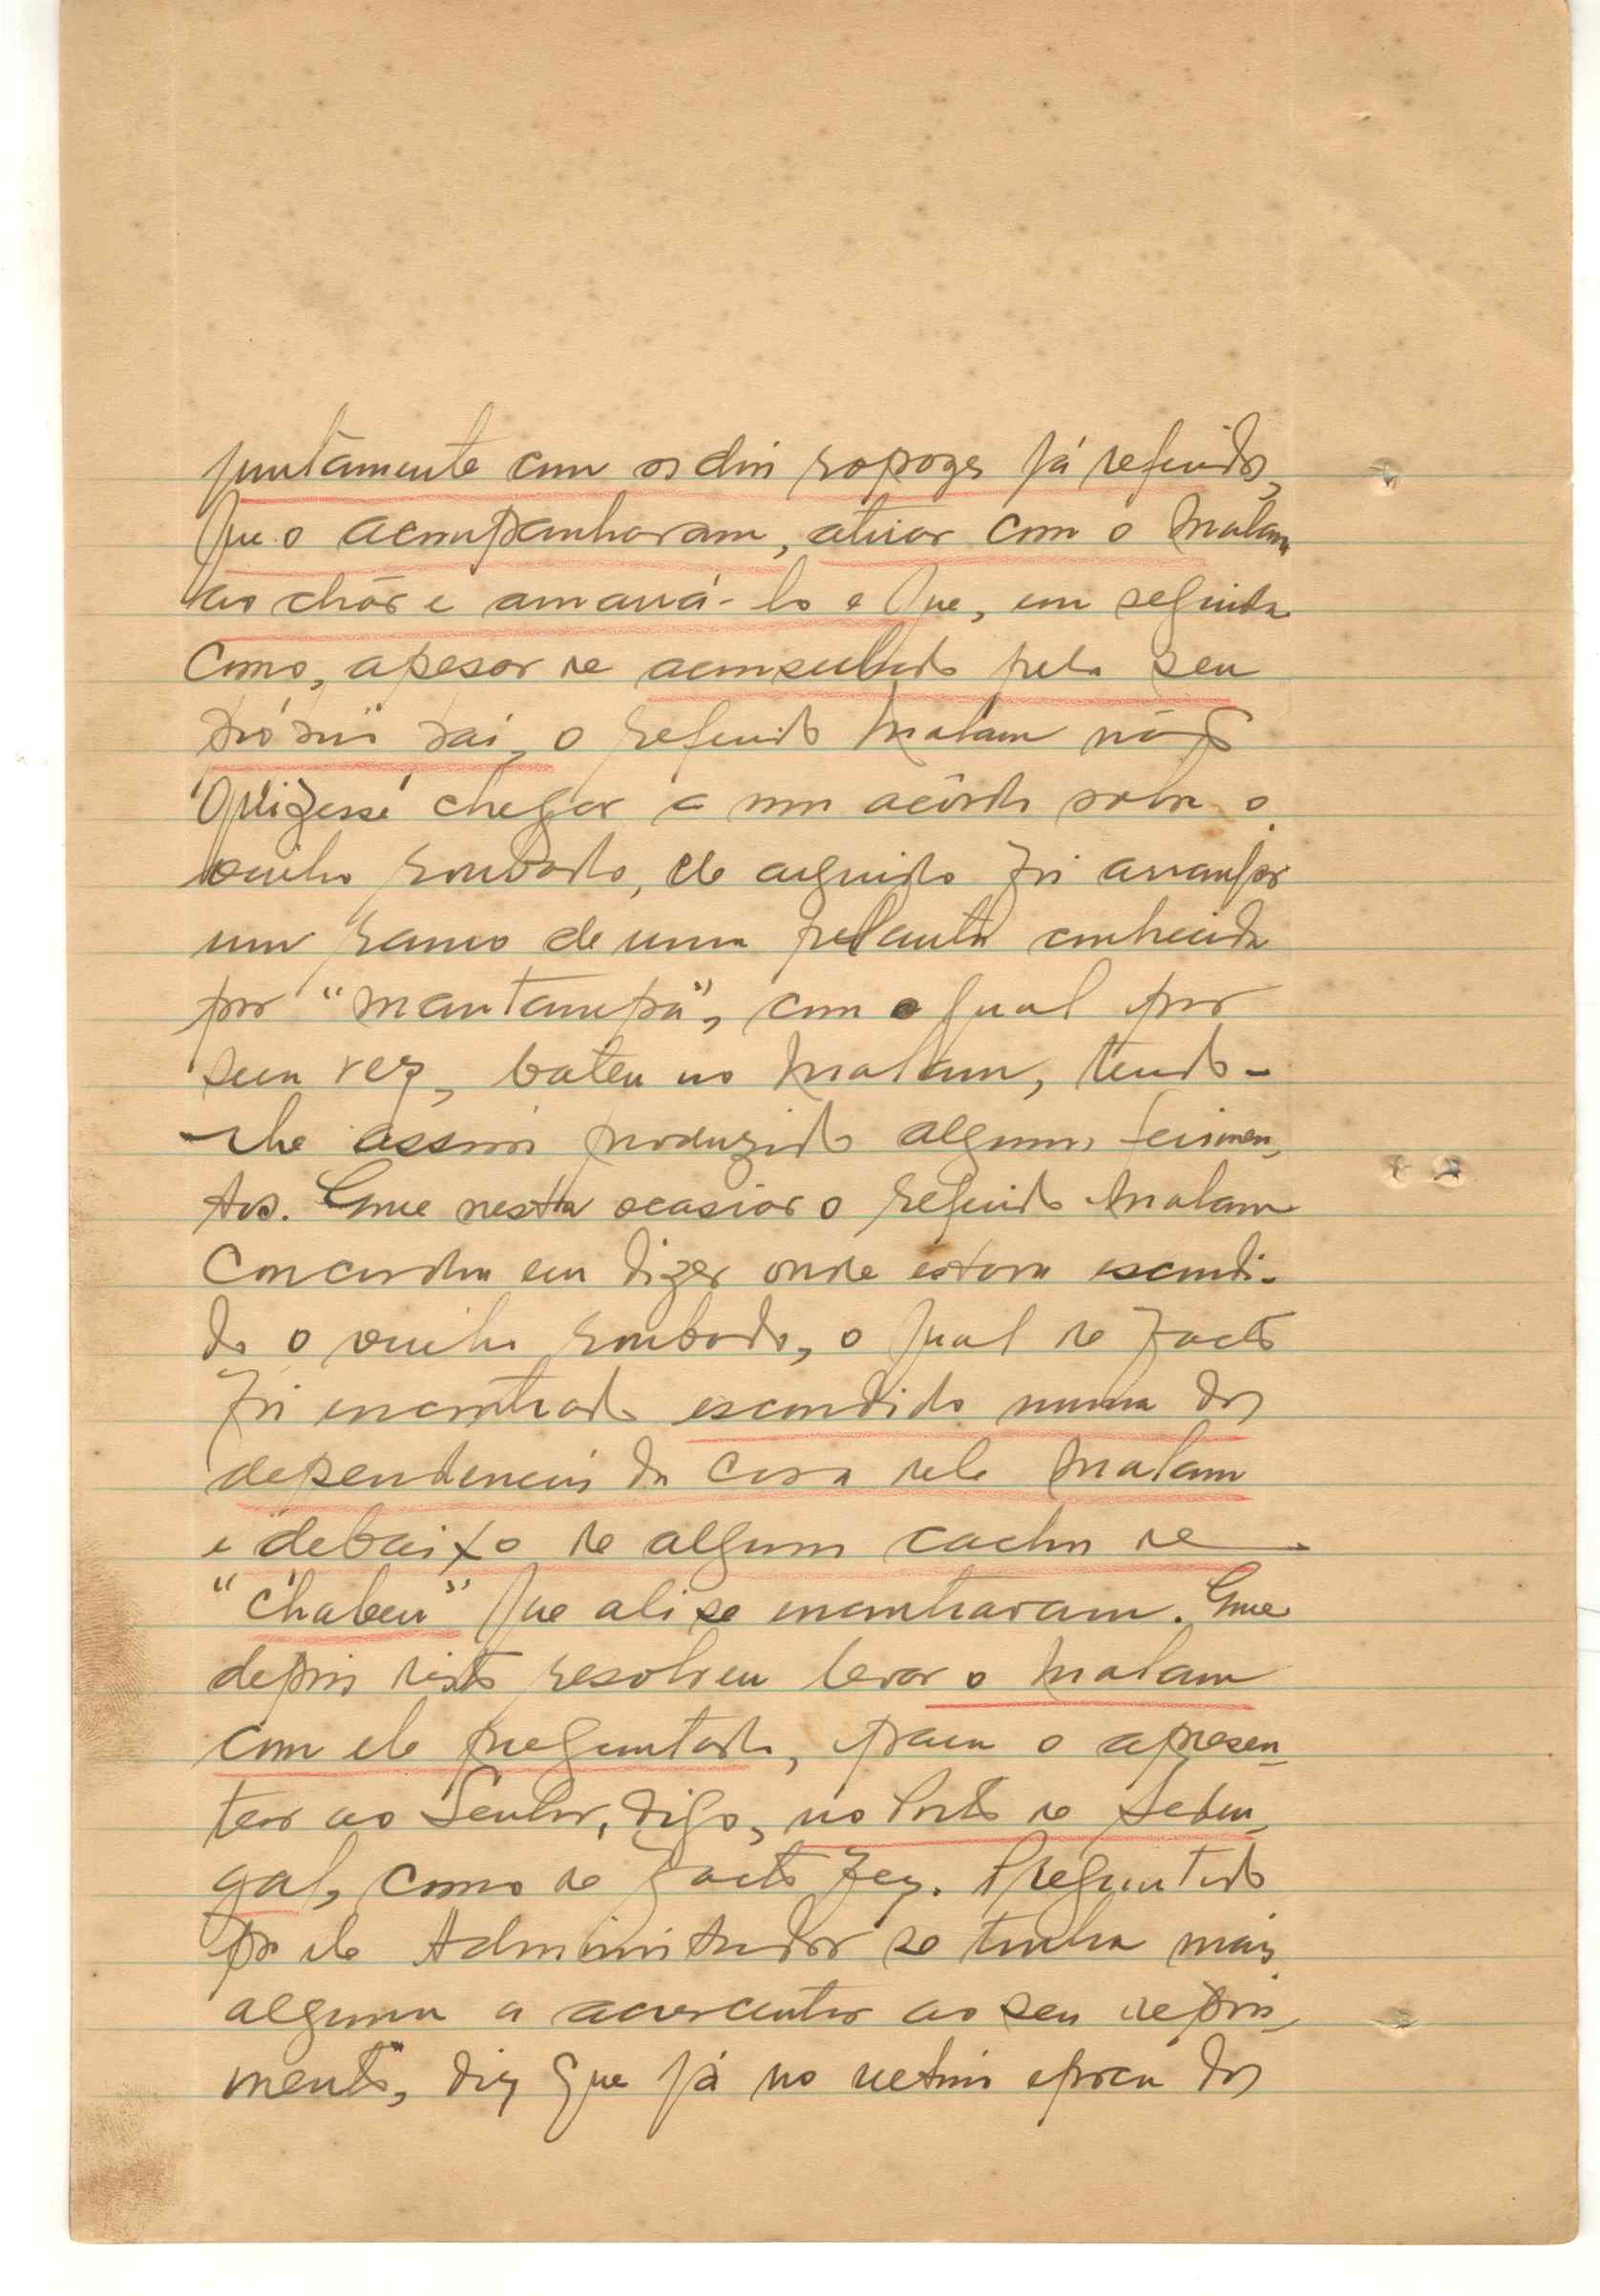 juntamente com os dois rapazes já referidos,
que o acompanharam, atirar com o Malam
ao chão e amarrá-lo e que, em seguida
como, apesar de aconselhado pelo seu
próprio pai, o referido Malam não
quizesse chegar a um acôrdo sobre o
milho roubado, ele arguido foi arranjar
um ramo de uma planta conhecida
por "mantampa", com o qual por
sua vez, bateu no Malam, tendo-
-lhe assim produzido alguns ferimen-
tos. Que nesta ocasião o referido Malam
concordou em dizer onde estava escondi-
do o milho roubado, o qual de facto
foi encontrado escondido numa das
dependencias da casa dele Malam
e debaixo de alguns cachos de
"chabeu" que ali se encontravam. Que
depois disto resolveu levar o Malam
com ele preguntado, para o apresen-
tar ao Senhor, digo, no Posto de Seden-
gal, como de facto fez. Preguntado
por ele Administrador se tinha mais
alguma a acrescentar ao seu depoi-
mento, diz que já no detido epoca das